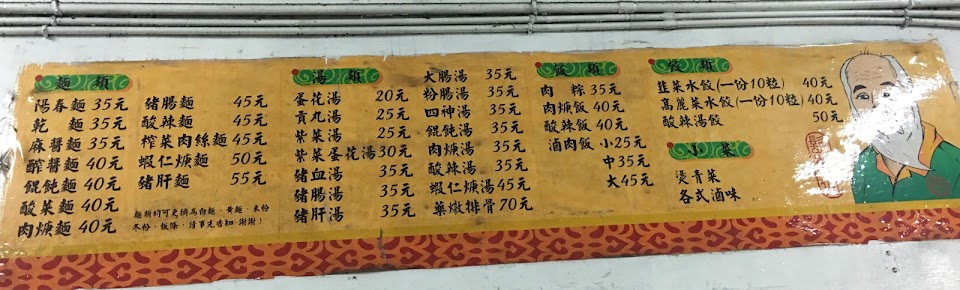 麵類
陽春麵 35元
乾麵 35元
麻醬麵 35元
酢醬麵 40元
餛飩麵 40元
酸菜麵 40元
肉焿麵 40元
豬腸麵 45元
酸辣麵 45元
榨菜肉絲麵 45元
蝦仁焿麵 50元
豬肝麵 55元
麵類均可更換為白麵、黃麵、米粉
冬粉、板條、請事先告知 謝謝！
湯類
蛋花湯 20元
貢丸湯 25元
紫菜湯 25元
紫菜蛋花湯 30元
豬血湯 35元
豬腸湯 35元
豬肝湯 35元
大腸湯 35元
粉腸湯 35元
四神湯 35元
餛飩湯 35元
肉焿湯 35元
酸辣湯 35元
蝦仁焿湯 45元
藥燉排骨 70元
飯類
肉粽 35元
肉焿飯 40元
酸辣飯 40元
滷肉飯 小25元
中35元
大45元
餃類
韭菜水餃(一份10粒) 40元
高麗菜水餃(一份10粒) 40元
酸辣湯餃 50元
小菜
燙青菜
各式滷味